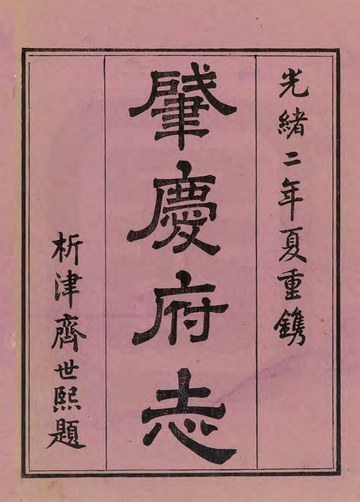 光緒二年夏重鐫
肇慶府志
析津齊世熙題